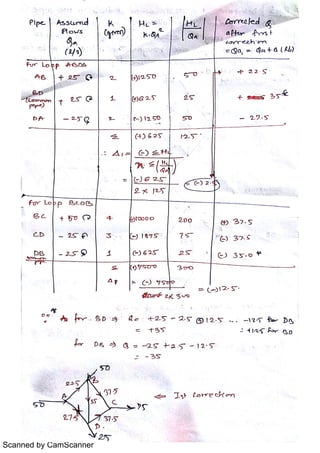 Pipe | Assumed Flows Qa (l/s) | K (given) | HL = K.Qa² | HL/Qa | Corrected Q after first correction = Qa, = Qa + Δ (l/s)
For Loop ABDA
AB + 25 2 (+)1250 50 + 22.5
BD (Common pipe) + 25 1 (+)625 25 + 35
DA - 25 2 (-)1250 50 - 27.5
Σ (+)625 125
∴ Δ1 = (-) Σ HL / n Σ (HL/Qa)
= (-) 625 / 2 x 125 = (-) 2.5
For loop BCDB
BC + 50 4 (+)10000 200 (+) 37.5
CD - 25 3 (-)1875 75 (-) 37.5
DB - 25 1 (-)625 25 (-) 35.0 *
Σ (+)7500 300
Δ2 = (-) 7500 / 2x300 = (-)12.5
* As for BD ⇒ Q = +25 - 2.5 (+)12.5 ... -12.5 for DB
= +35 : +12.5 for BD
for DB ⇒ Q = -25 + 2.5 - 12.5
= - 35
50
B
22.5
37.5
50
A
35
C
75
⇐ Ist Correction
27.5
37.5
D
25
Scanned by CamScanner